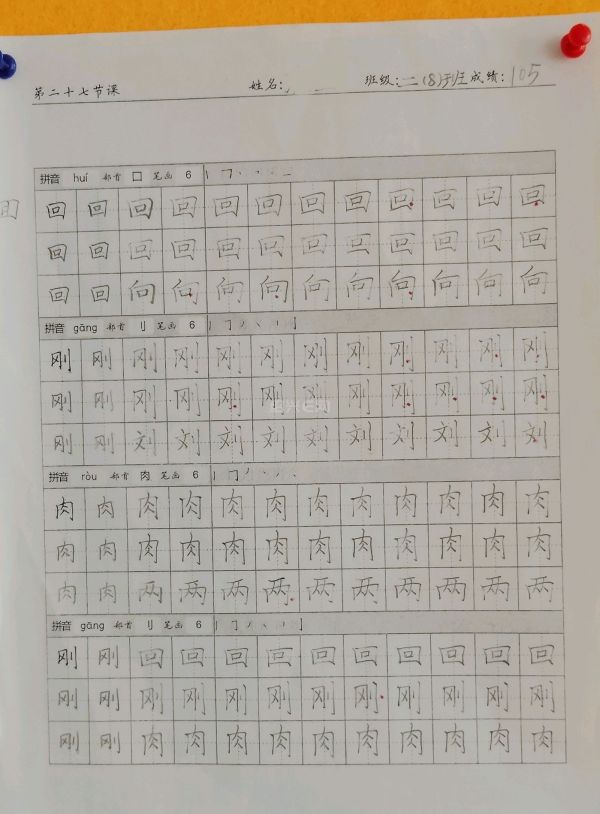 第二十七节课 姓名: 班级:二(8)班 成绩:105
拼音 huí 部首 囗 笔画 6
回 回 回 回 回 回 回 回 回 回 回 回
回 回 回 回 回 回 回 回 回 回 回 回
回 回 向 向 向 向 向 向 向 向 向 向
拼音 gāng 部首 刂 笔画 6
刚 刚 刚 刚 刚 刚 刚 刚 刚 刚 刚 刚
刚 刚 刚 刚 刚 刚 刚 刚 刚 刚 刚 刚
刚 刚 刘 刘 刘 刘 刘 刘 刘 刘 刘 刘
拼音 ròu 部首 肉 笔画 6
肉 肉 肉 肉 肉 肉 肉 肉 肉 肉 肉 肉
肉 肉 肉 肉 肉 肉 肉 肉 肉 肉 肉 肉
肉 肉 两 两 两 两 两 两 两 两 两 两
拼音 gāng 部首 刂 笔画 6
刚 刚 回 回 回 回 回 回 回 回 回 回
刚 刚 刚 刚 刚 刚 刚 刚 刚 刚 刚 刚
刚 刚 肉 肉 肉 肉 肉 肉 肉 肉 肉 肉